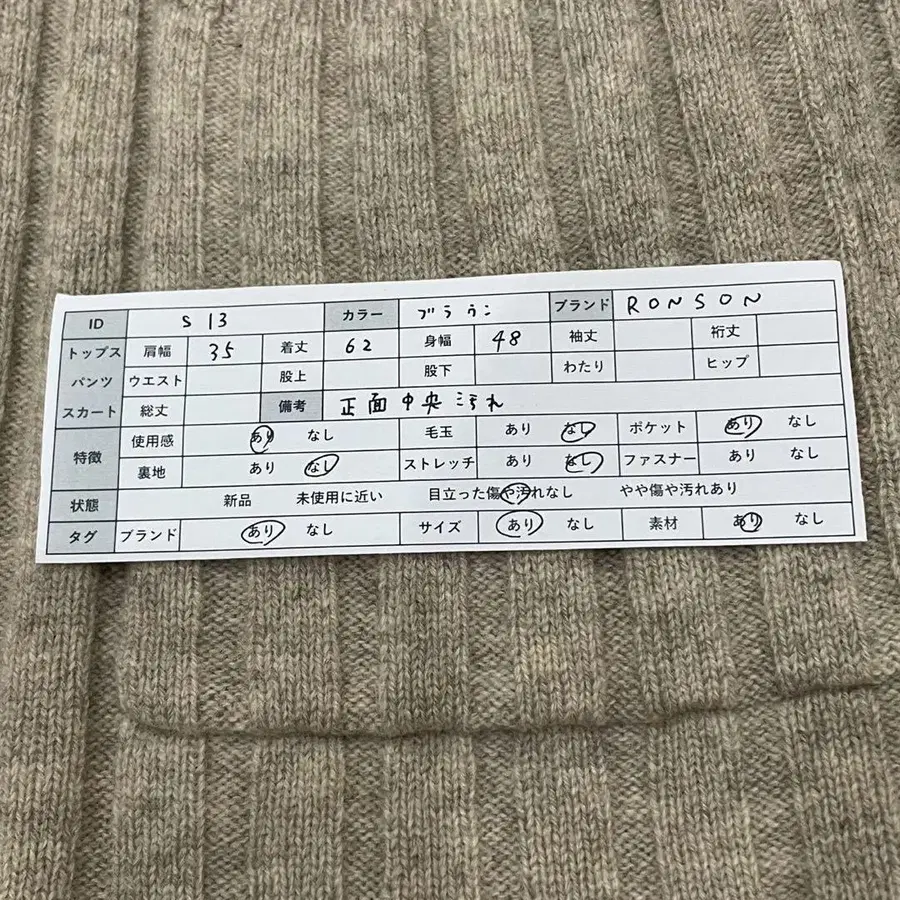 ID S 13 カラー ブラウン ブランド RONSON
トップス 肩幅 35 着丈 62 身幅 48 袖丈 裄丈
パンツ ウエスト 股上 股下 わたり ヒップ
スカート 総丈 備考 正面中央汚れ
特徴 使用感 あり なし 毛玉 あり なし ポケット あり なし
裏地 あり なし ストレッチ あり なし ファスナー あり なし
状態 新品 未使用に近い 目立った傷や汚れなし やや傷や汚れあり
タグ ブランド あり なし サイズ あり なし 素材 あり なし